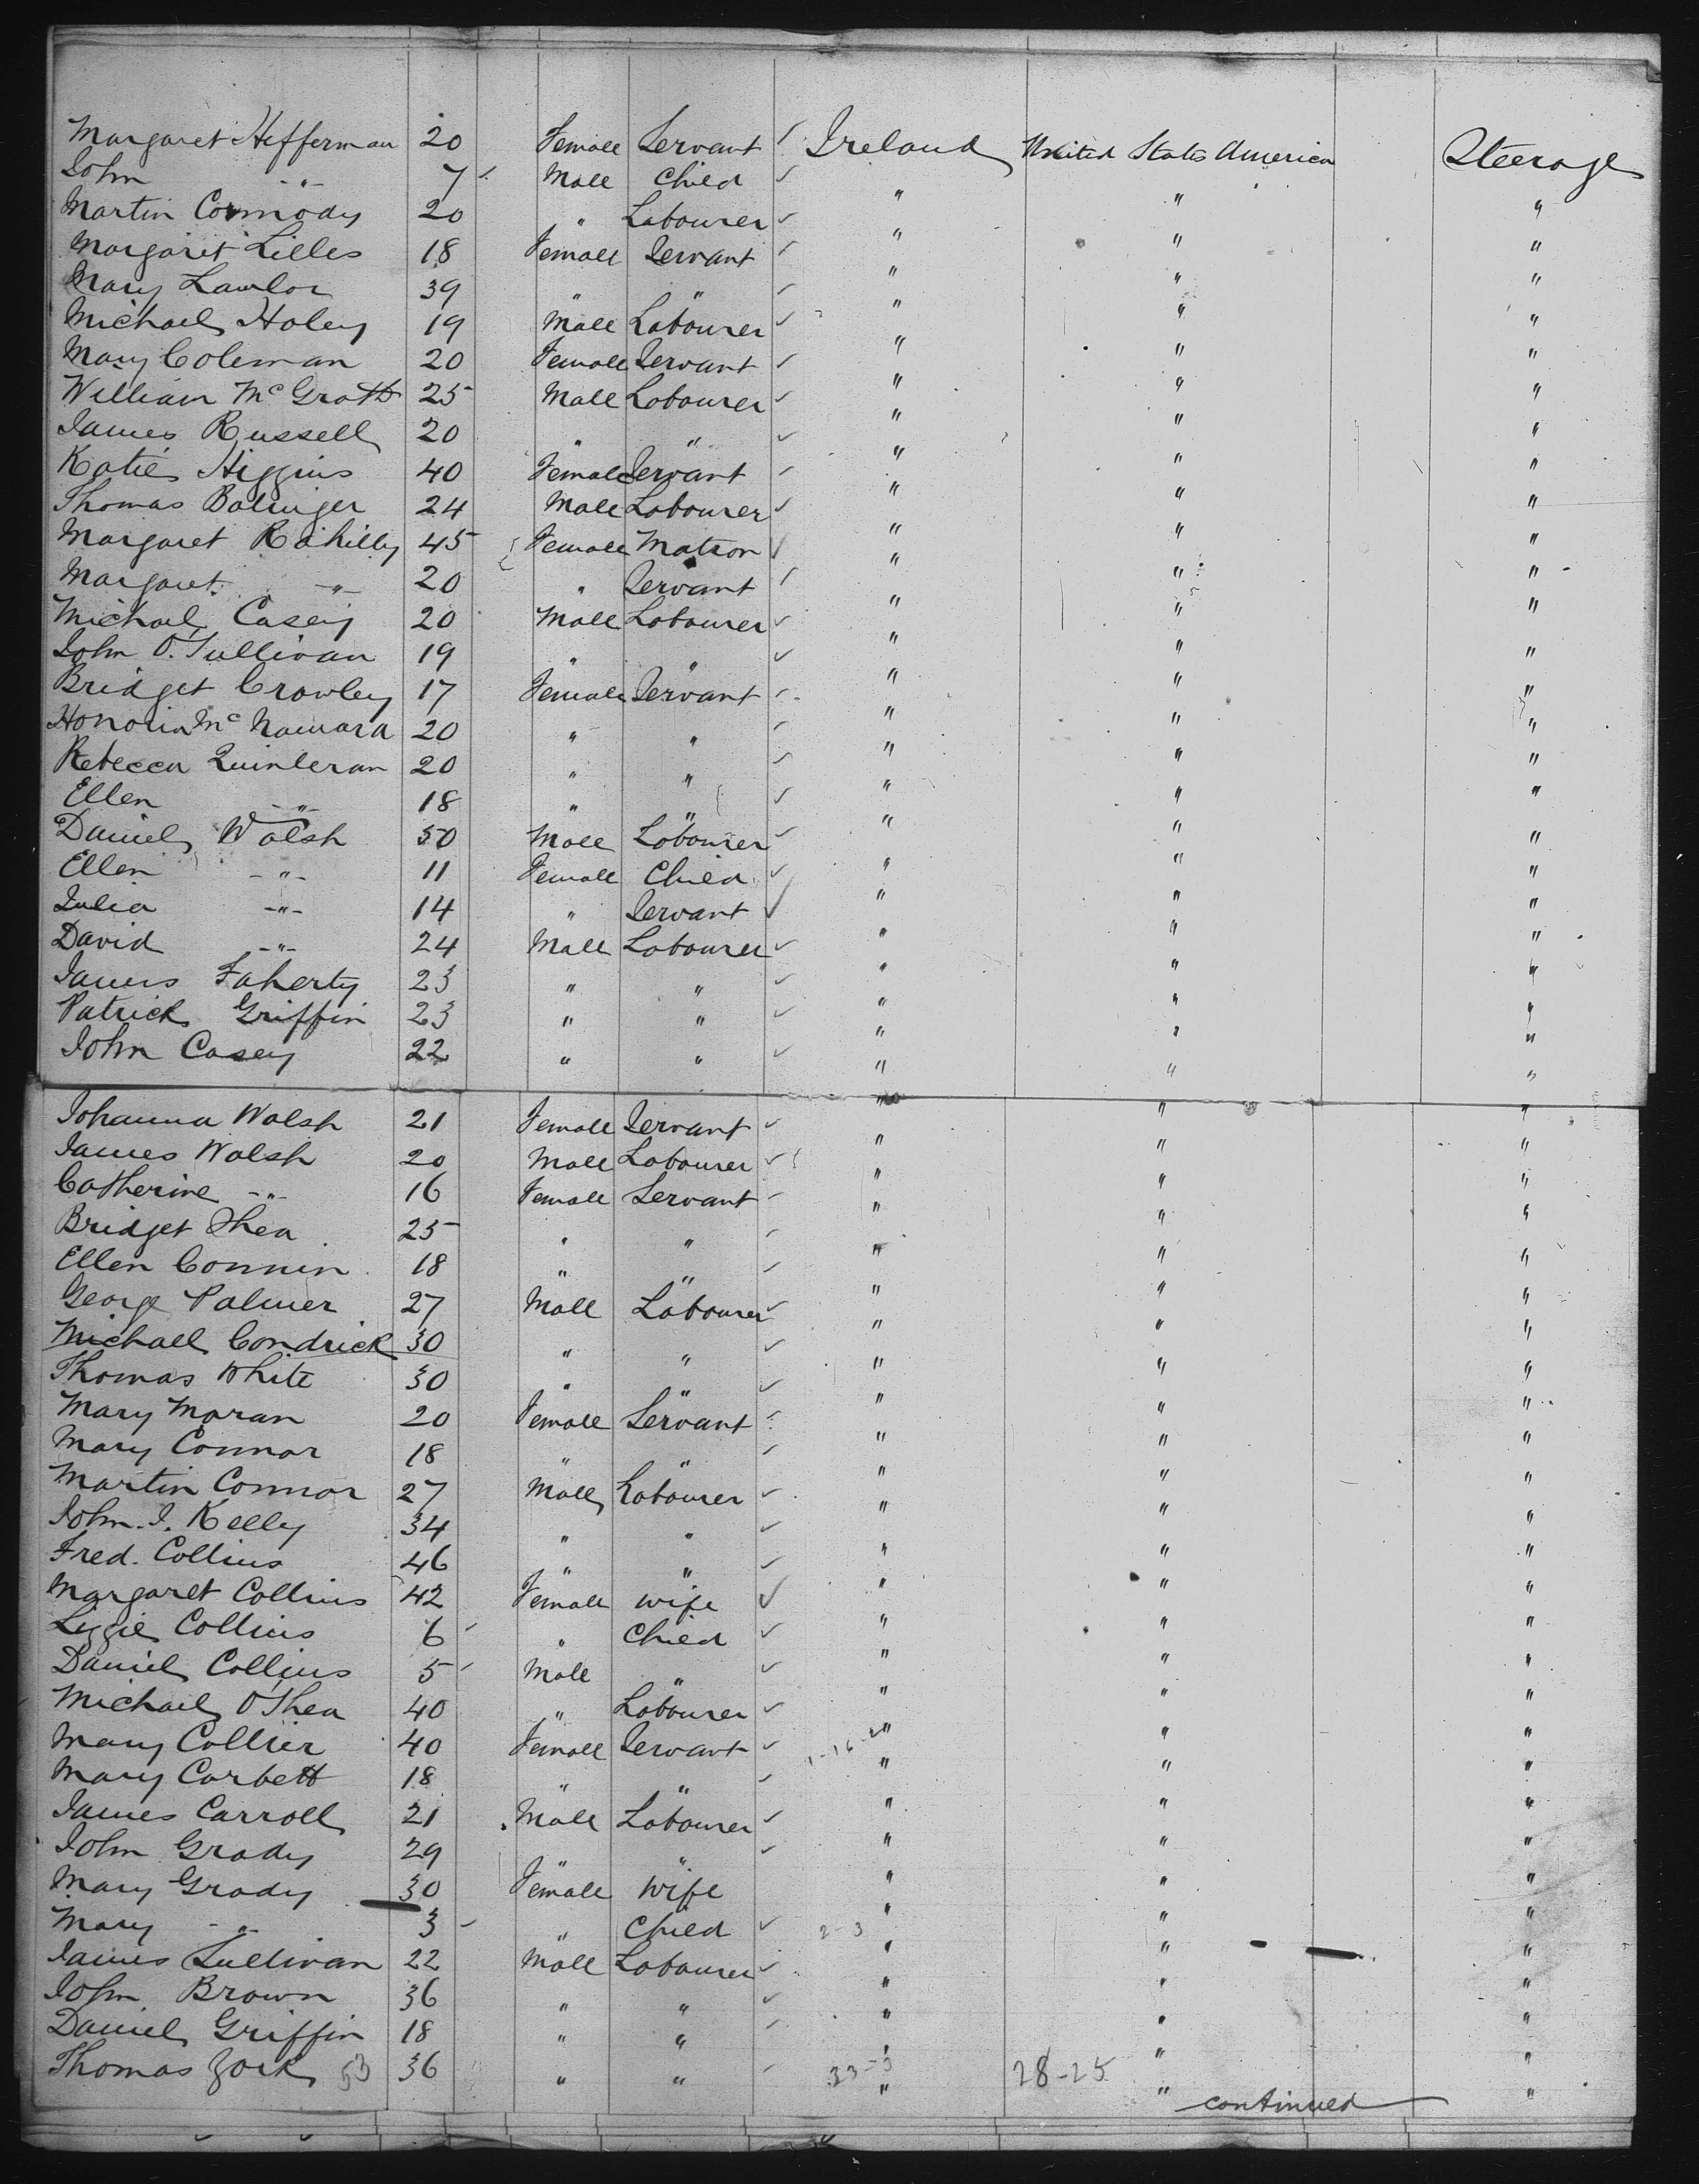 Margaret Hefferman 20 Female Servant ✓ Ireland United States America Steerage
John -"- 7 ✓ Male Child ✓ " " "
Martin Cormody 20 " Labourer ✓ " " "
Margaret Lilles 18 Female Servant ✓ " " "
Mary Lawlor 39 " " ✓ " " "
Michael Holey 19 Male Labourer ✓ " " "
Mary Coleman 20 Female Servant ✓ " " "
William McGrath 25 Male Labourer ✓ " " "
James Russell 20 " " ✓ " " "
Katie Higgins 40 Female Servant ✓ " " "
Thomas Balinger 24 Male Labourer ✓ " " "
Margaret Rahilly 45 Female Matron ✓ " " "
Margaret -"- 20 " Servant ✓ " " "
Michael Casey 20 Male Labourer ✓ " " "
John O'Sullivan 19 " " ✓ " " "
Bridget Crowley 17 Female Servant ✓ " " "
Honoria McNamara 20 " " ✓ " " "
Rebecca Quinleran 20 " " ✓ " " "
Ellen -"- 18 " " ✓ " " "
Daniel Walsh 50 Male Labourer ✓ " " "
Ellen -"- 11 Female Child ✓ " " "
Julia -"- 14 " Servant ✓ " " "
David -"- 24 Male Labourer ✓ " " "
James Faherty 23 " " ✓ " " "
Patrick Griffin 23 " " ✓ " " "
John Casey 22 " " ✓ " " "
Johanna Walsh 21 Female Servant ✓ " " "
James Walsh 20 Male Labourer ✓ " " "
Catherine -"- 16 Female Servant ✓ " " "
Bridget Shea 25 " " ✓ " " "
Ellen Connin 18 " " ✓ " " "
George Palmer 27 Male Labourer ✓ " " "
Michael Condrick 30 " " ✓ " " "
Thomas White 30 " " ✓ " " "
Mary Moran 20 Female Servant ✓ " " "
Mary Connor 18 " " ✓ " " "
Martin Connor 27 Male Labourer ✓ " " "
John. J. Kelly 34 " " ✓ " " "
Fred. Collins 46 " " ✓ " " "
Margaret Collins 42 Female wife ✓ " " "
Lizzie Collins 6 ✓ " Child ✓ " " "
Daniel Collins 5 ✓ Male " ✓ " " "
Michael O'Shea 40 " Labourer ✓ " " "
Mary Collier 40 Female Servant ✓ " " "
Mary Corbett 18 " " ✓ " " "
James Carroll 21 Male Labourer ✓ " " "
John Grady 29 " " ✓ " " "
Mary Grady 30 Female Wife " " "
Mary -"- 3 ✓ " Child ✓ 2-3 " " "
James Sullivan 22 Male Labourer ✓ " " "
John Brown 36 " " ✓ " " "
Daniel Griffin 18 " " ✓ " " "
Thomas York 53 36 " " ✓ 33-3 " 28-25 " "
continued